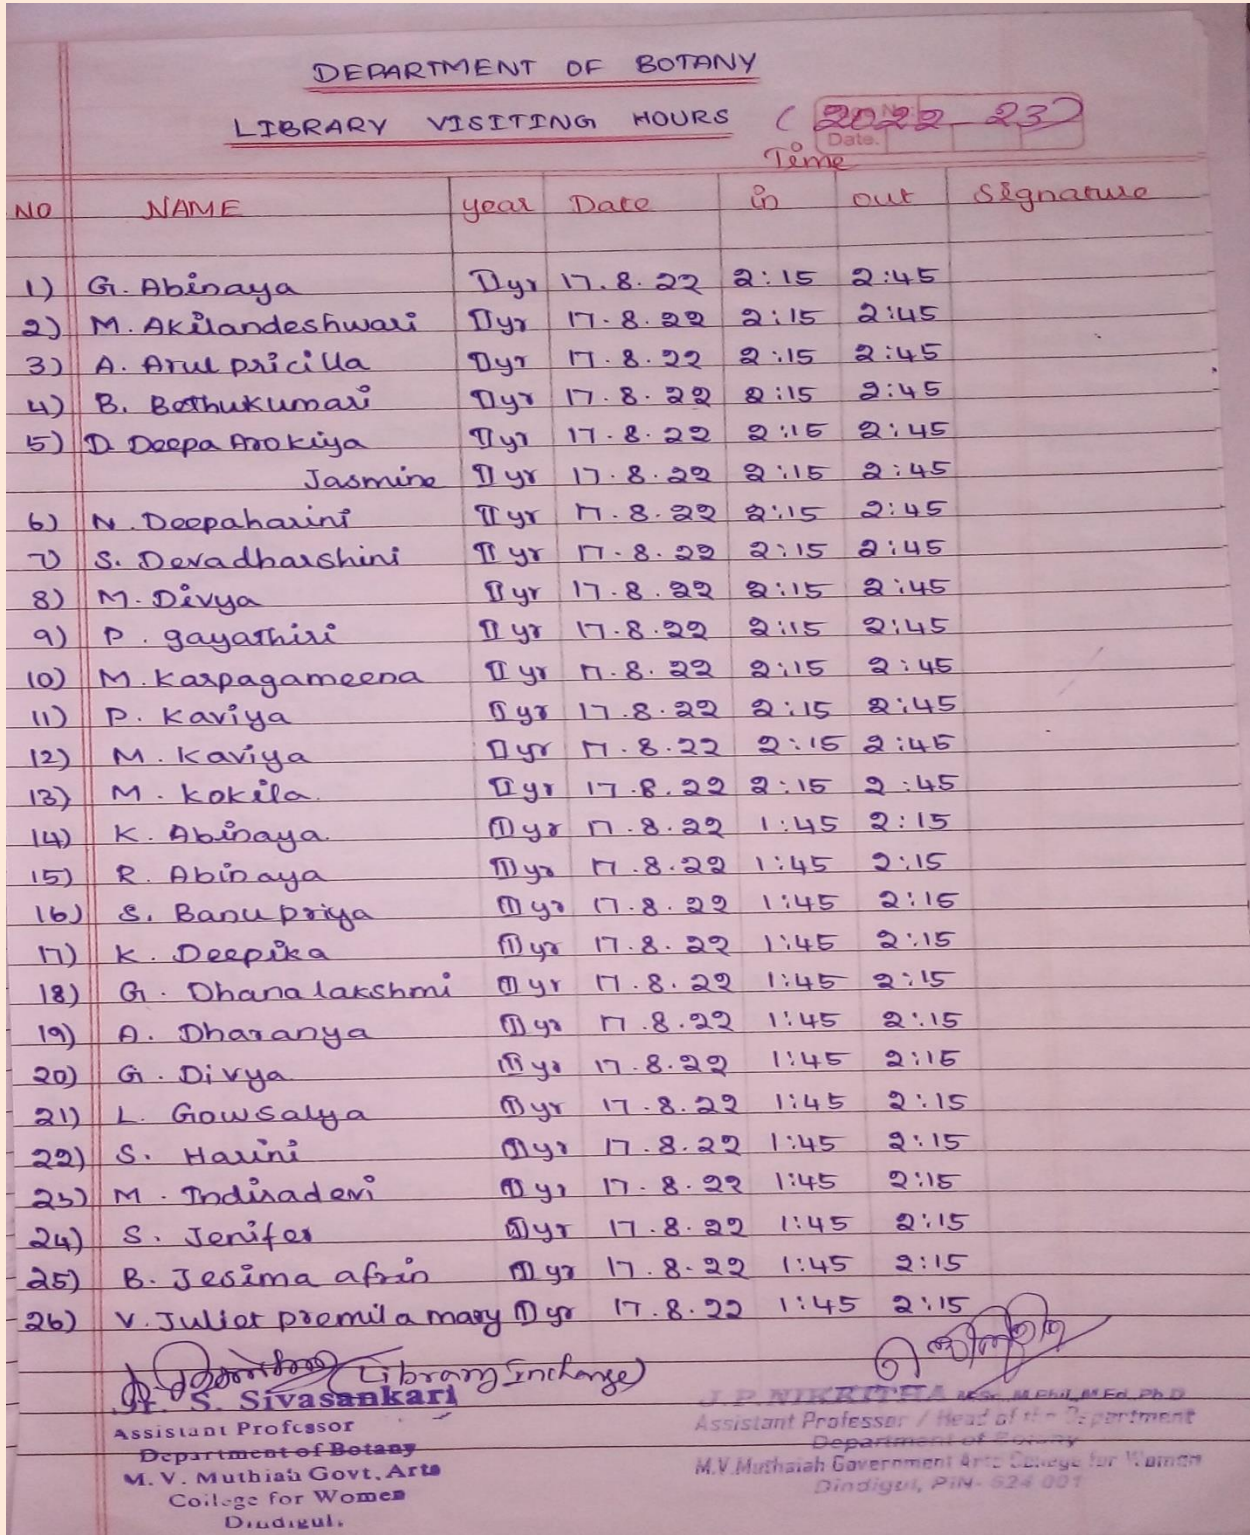 DEPARTMENT OF BOTANY
LIBRARY VISITING HOURS (2022-23)
Date.
Time
NO NAME year Date in out Signature
1) G. Abinaya II yr 17.8.22 2:15 2:45
2) M. Akilandeshwari II yr 17.8.22 2:15 2:45
3) A. Arul pricilla II yr 17.8.22 2:15 2:45
4) B. Bothukumari II yr 17.8.22 2:15 2:45
5) D. Deepa Arokiya II yr 17.8.22 2:15 2:45
Jasmine II yr 17.8.22 2:15 2:45
6) N. Deepaharini II yr 17.8.22 2:15 2:45
7) S. Devadharshini II yr 17.8.22 2:15 2:45
8) M. Divya II yr 17.8.22 2:15 2:45
9) P. gayathiri II yr 17.8.22 2:15 2:45
10) M. Karpagameena II yr 17.8.22 2:15 2:45
11) P. Kaviya II yr 17.8.22 2:15 2:45
12) M. Kaviya II yr 17.8.22 2:15 2:45
13) M. Kokila. II yr 17.8.22 2:15 2:45
14) K. Abinaya. yr 17.8.22 1:45 2:15
15) R. Abinaya yr 17.8.22 1:45 2:15
16) S. Banupriya yr 17.8.22 1:45 2:15
17) K. Deepika yr 17.8.22 1:45 2:15
18) G. Dhanalakshmi yr 17.8.22 1:45 2:15
19) A. Dharanya yr 17.8.22 1:45 2:15
20) G. Divya yr 17.8.22 1:45 2:15
21) L. Gowsalya yr 17.8.22 1:45 2:15
22) S. Harini yr 17.8.22 1:45 2:15
23) M. Indiradevi yr 17.8.22 1:45 2:15
24) S. Jenifer yr 17.8.22 1:45 2:15
25) B. Jesima afrin yr 17.8.22 1:45 2:15
26) V. Juliet premila mary yr 17.8.22 1:45 2:15
(Library Incharge)
S. Sivasankari
Assistant Professor
Department of Botany
M. V. Muthiah Govt. Arts
College for Women
Dindigul.
J.P. NIKKITHA M.Sc, M.Phil, M.Ed, Ph.D
Assistant Professor / Head of the Department
Department of Botany
M.V.Muthaiah Government Arts College for Women
Dindigul, PIN- 624 001